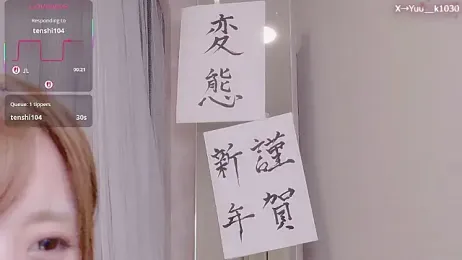 Responding to
tenshi104
00:21
Queue: 1 tippers
tenshi104 30s
X→Yuu__k1030
変態
謹賀
新年